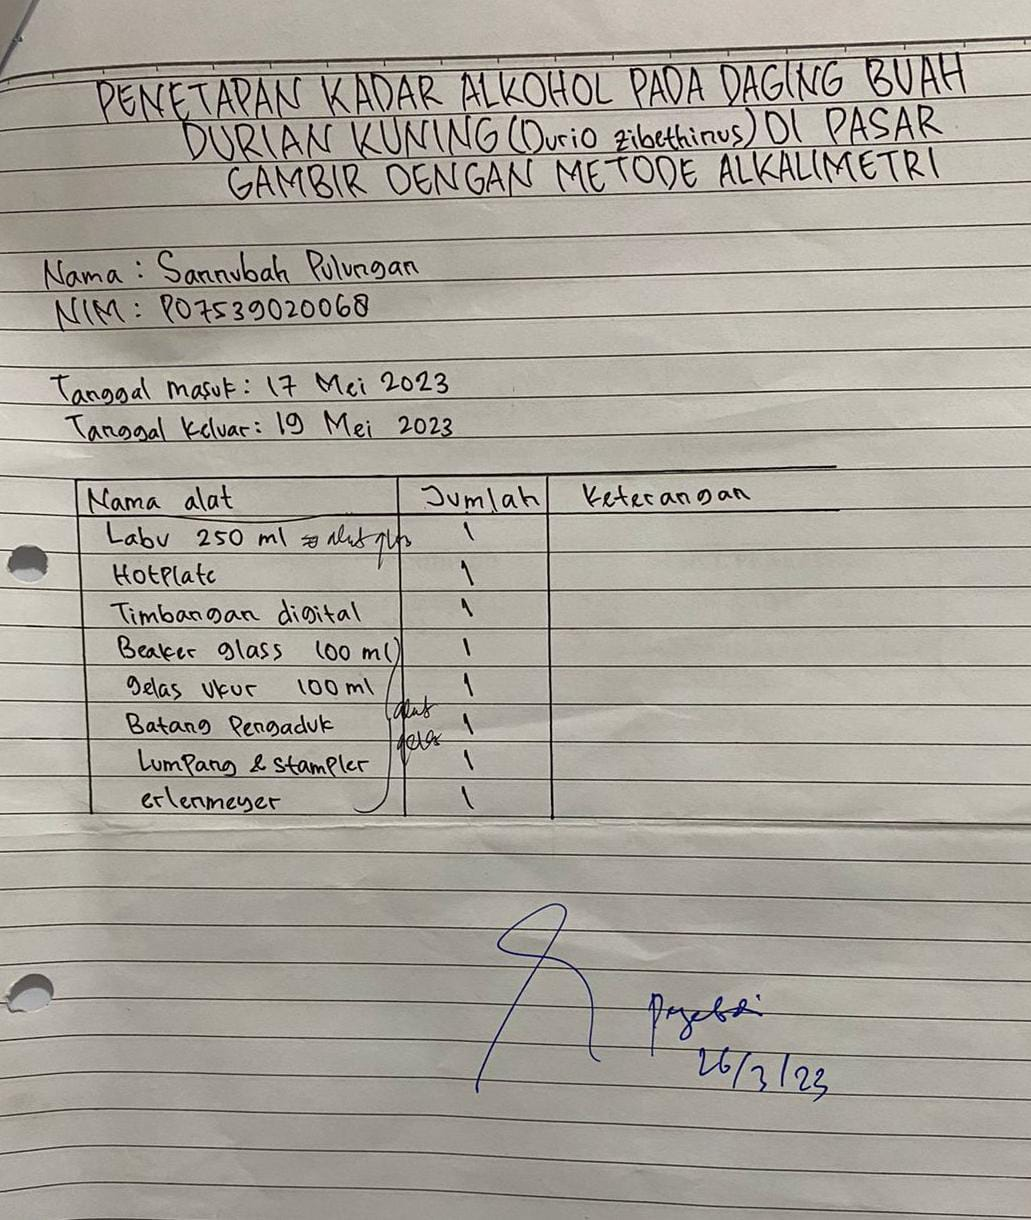 PENETAPAN KADAR ALKOHOL PADA DAGING BUAH
DURIAN KUNING (Durio zibethinus) DI PASAR
GAMBIR DENGAN METODE ALKALIMETRI
Nama : Sannubah Pulungan
NIM : P07539020068
Tanggal masuk : 17 Mei 2023
Tanggal keluar : 19 Mei 2023
Nama alat Jumlah Keterangan
Labu 250 ml 1
Hotplate 1
Timbangan digital 1
Beaker glass 100 ml 1
gelas ukur 100 ml 1
Batang Pengaduk 1
Lumpang & stampler 1
erlenmeyer 1
alat
gelas
26/3/23